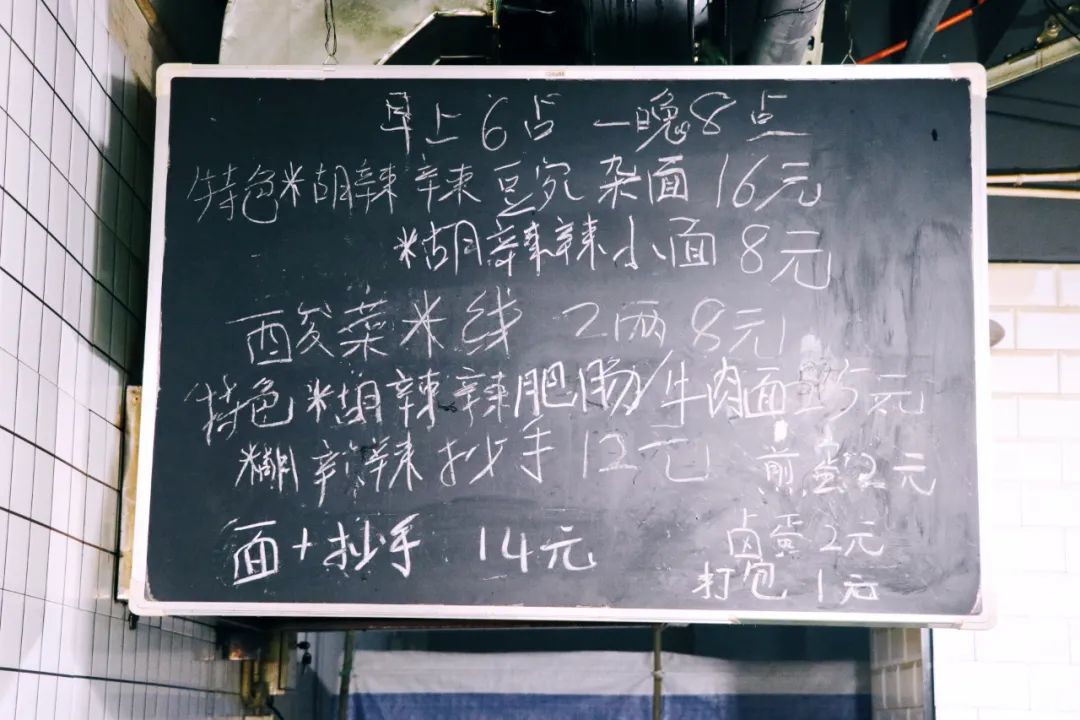 早上6占一晚8点
特色糊辣辣豌杂面 16元
糊辣辣小面 8元
酸菜米线 2两 8元
特色糊辣辣肥肠/牛肉面 元
糊辣辣抄手 12元 煎蛋2元
面+抄手 14元 卤蛋2元
打包 1元